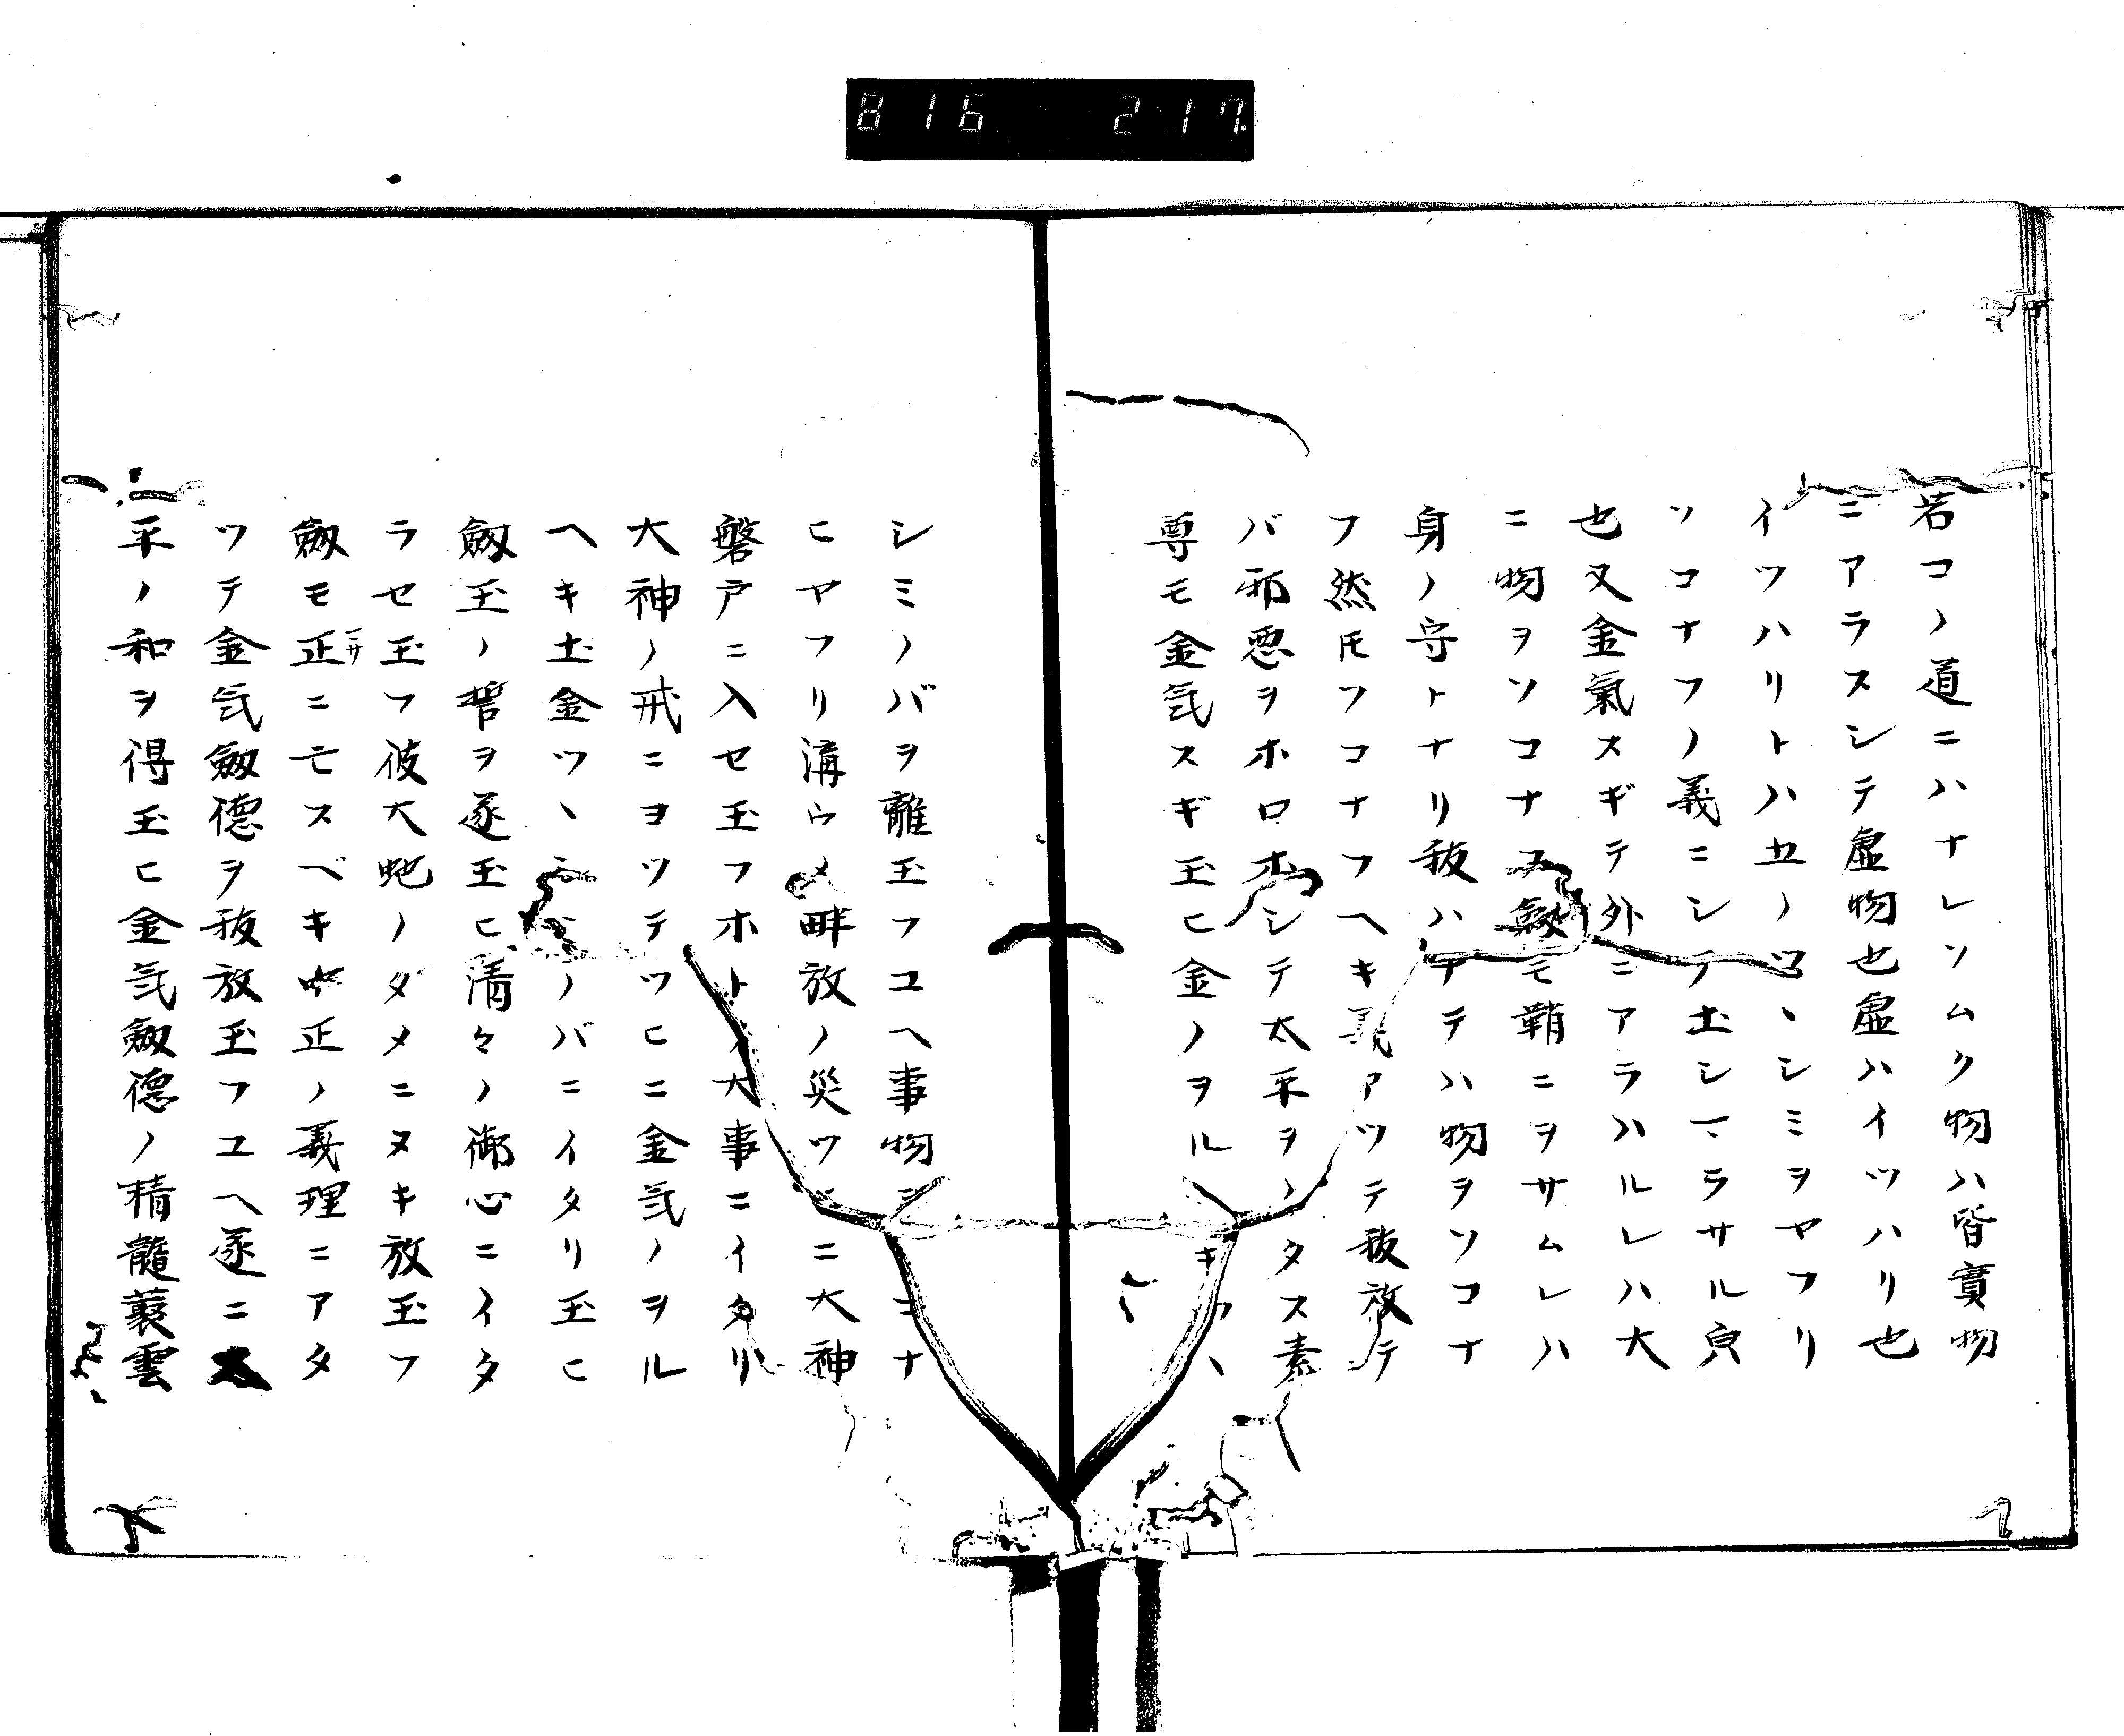 816 217
若コノ道ニハナレソムク物ハ皆實物
ニアラスシテ虚物也虚ハイツハリ也
イツハリトハ土ノツヽシミヲヤフリ
ソコナフノ義ニシテ土シマラサル皃
也又金氣スギテ外ニアラハルレハ大
ニ物ヲソコナフ劔モ鞘ニヲサムレハ
身ノ守トナリ抜ハナテハ物ヲソコナ
フ然𪜈ソコナフヘキ義アツテ抜放テ
バ邪悪ヲホロホシテ太平ヲノタス素
尊モ金気スギ玉ヒ金ノヲル
シミノバヲ離玉フユヘ事物ミ ナ
ヒヤフリ溝ウメ畔放ノ災ツ ニ大神
磐戸ニ入セ玉フホトノ大事ニイタリ
大神ノ戒ニヨツテツヒニ金気ノヲル
ヘキ土金ツヽシミノバニイタリ玉ヒ
劔玉ノ誓ヲ遂玉ヒ清々ノ御心ニイタ
ラセ玉フ彼大蛇ノタメニヌキ放玉フ
劔モ正ニモスベキ中正ノ義理ニアタ
ツテ金気劔徳ヲ抜放玉フユヘ遂ニ太
平ノ和ヲ得玉ヒ金気劔徳ノ精髓蕤雲